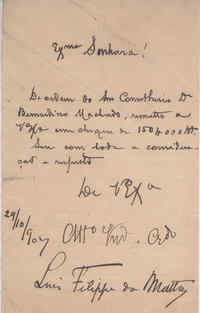 Exma Senhora!
De ordem do Snr Conselheiro Dr
Bernardino Machado, remetto a
VExa um cheque de 150#000 rs
Sou com toda a consider
ção e respeito
De VExa
29/10/907 Atto Vnd. Crdo
Luis Filippe da Matta